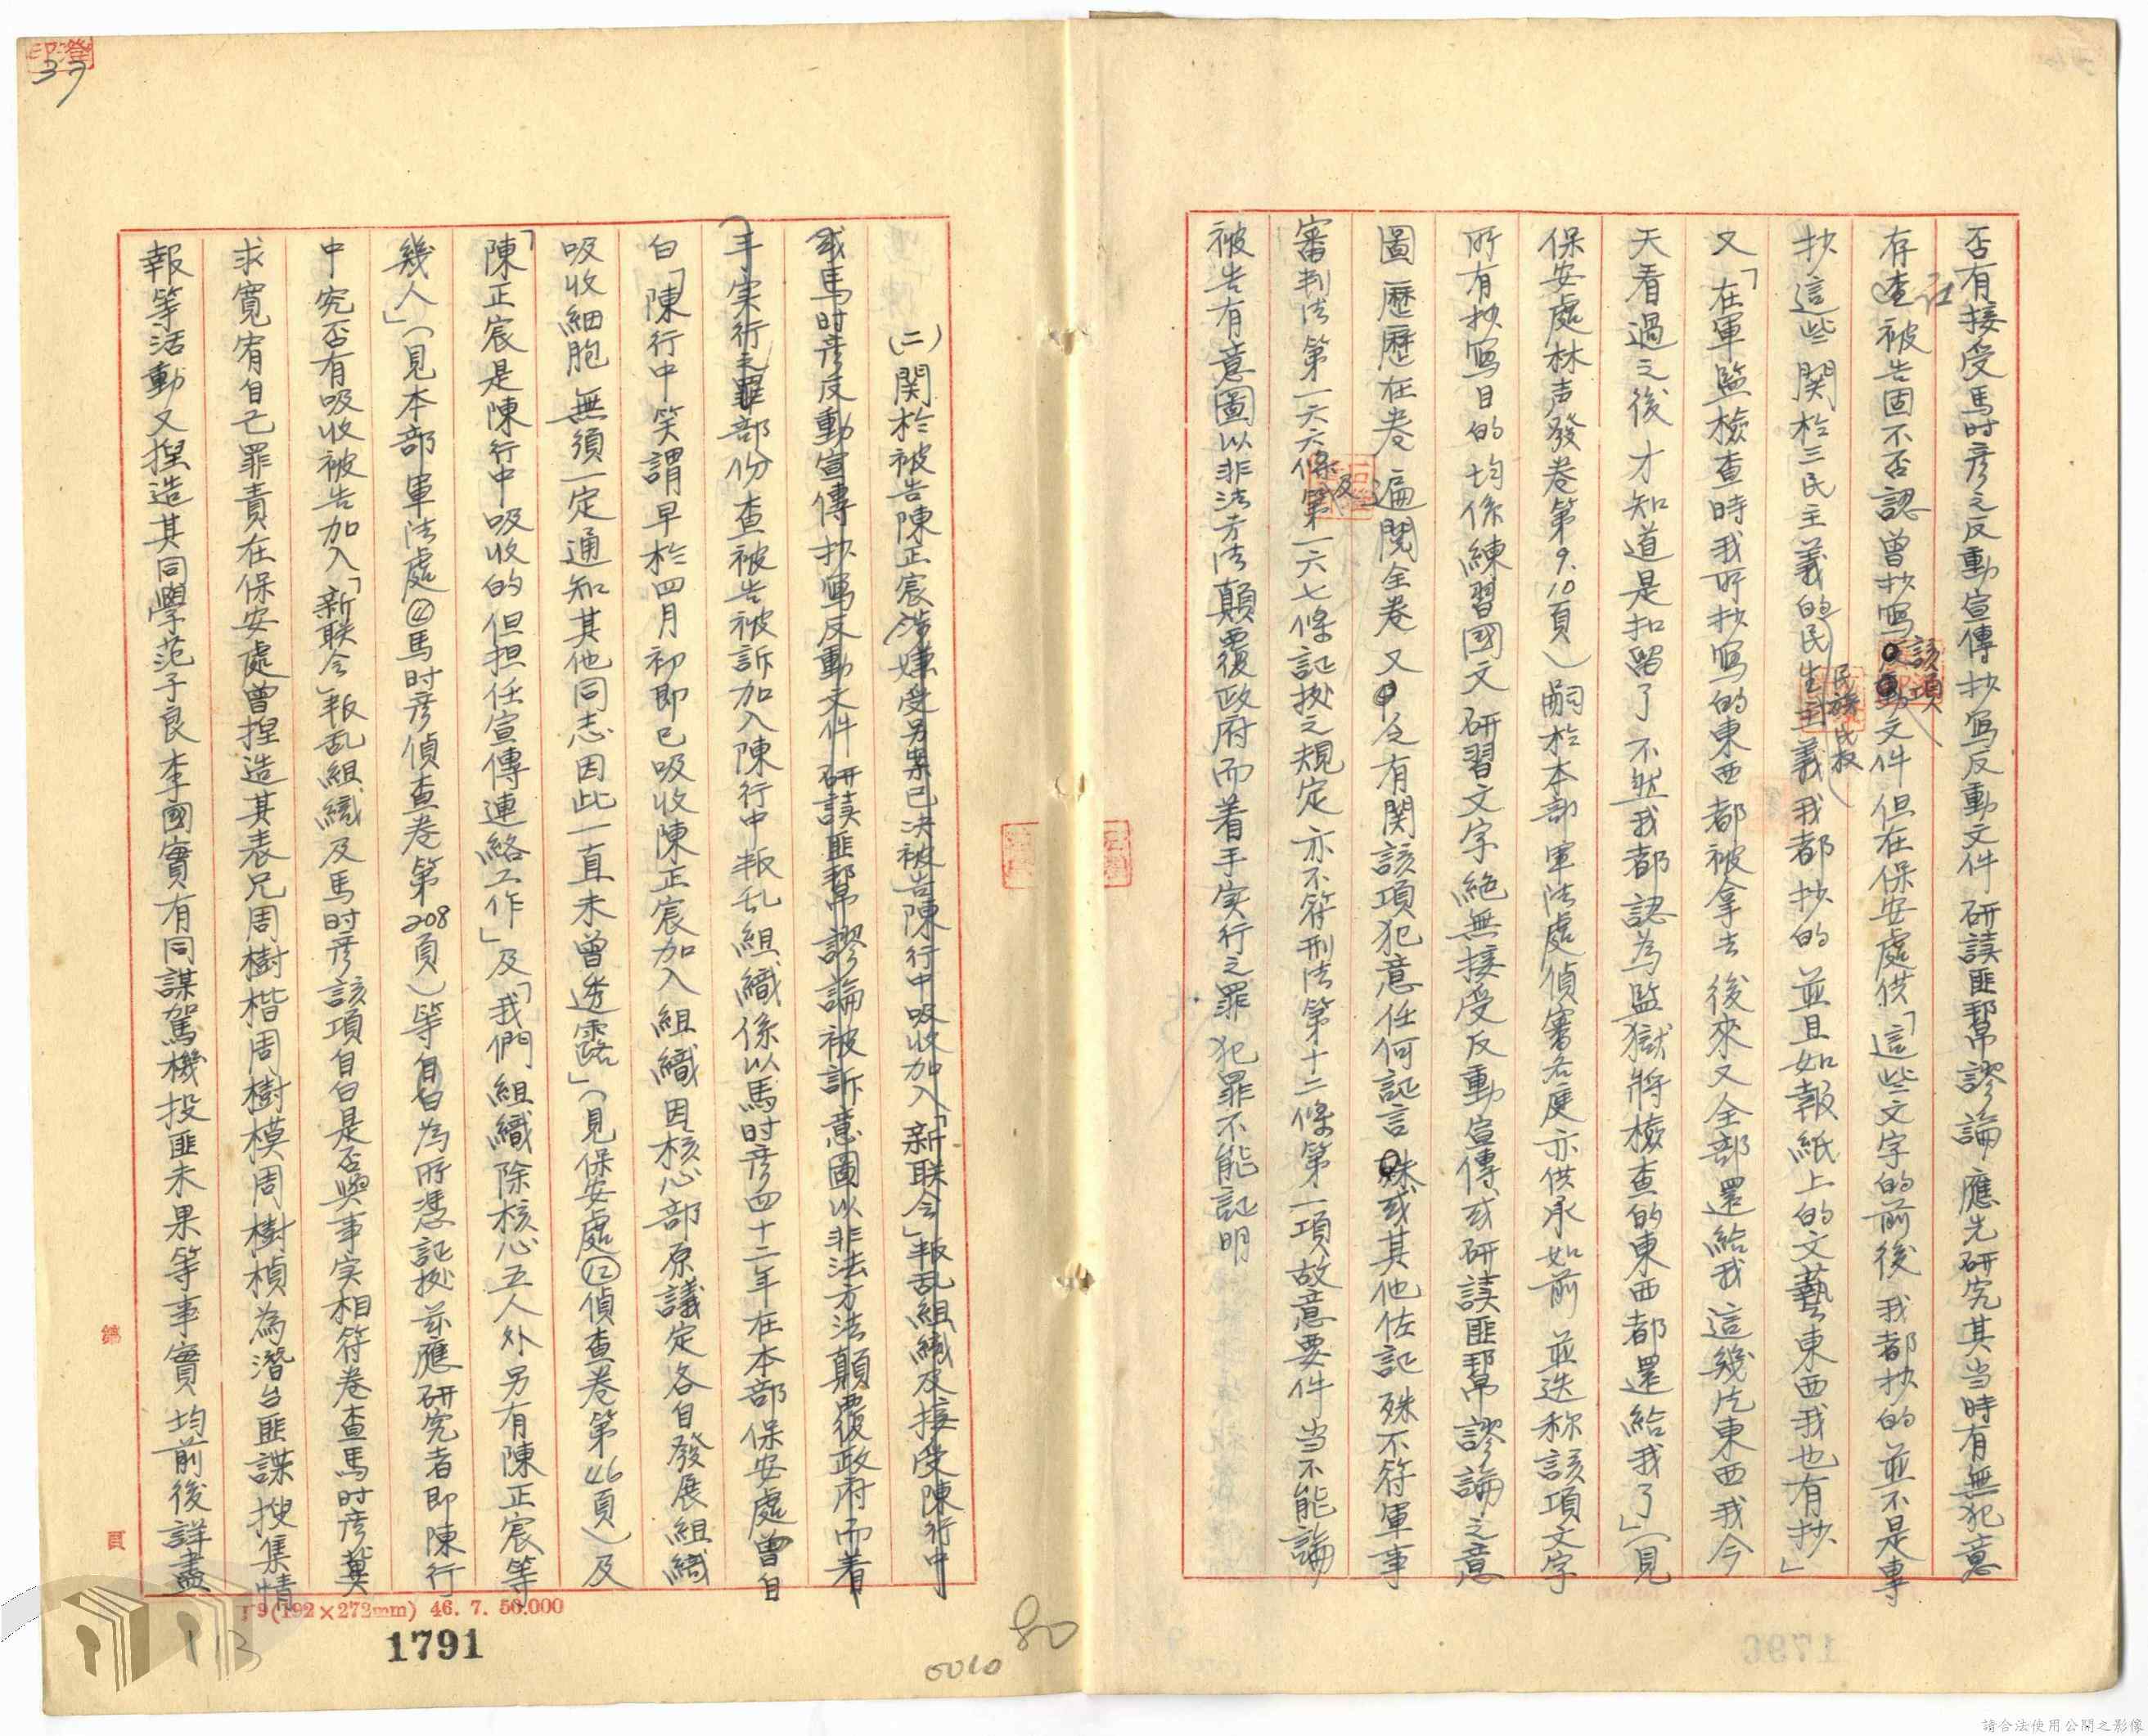 否有接受馬时彦之反動宣傳抄写反動文件研讀匪幫謬論應先研究其当時有無犯意
存在查被告固不否認曾抄写該項文件但在保安處供「這些文字的前後我都抄的並不是專
抄這些関於三民主義的民族民权民生主義我都抄的並且如報紙上的文藝東西我也有抄」
又「在軍監檢查時我所抄写的東西都被拿去後來又全部還給我這幾片東西我今
天看過之後才知道是扣留了不然我都認為監獄將檢查的東西都還給我了」（見
保安處林声發卷第9.10頁）嗣於本部軍法處偵審各庭亦供承如前並迭称該項文字
所有抄寫目的均係練習國文研習文字絕無接受反動宣傳或研讀匪幫謬論之意
圖歷歷在卷遍閱全卷又乏有関該項犯意任何証言或其他佐証殊不符軍事
審判法第一六六條及第一六七條証拠之規定亦不符刑法第十二條第一項故意要件当不能論
被告有意圖以非法方法顛覆政府而着手実行之罪犯罪不能証明
（二）関於被告陳正宸涉嫌受另案已决被告陳行中吸收加入「新联会」叛乱組織及接受陳行中
或馬时彦反動宣傳抄写反動文件研讀匪幫謬論被訴意圖以非法方法顛覆政府而着
手実行之罪部份查被告被訴加入陳行中叛乱組織係以馬时彦四十二年在本部保安處曾自
白「陳行中笑謂早於四月初即已吸收陳正宸加入組織因核心部原議定各自發展組織
吸收細胞無須一定通知其他同志因此一直未曾透露」（見保安處⑫偵查卷第46頁）及
「陳正宸是陳行中吸收的但担任宣傳連絡工作」及「我們組織除核心五人外另有陳正宸等
幾人」（見本部軍法處④馬时彦偵查卷第208頁）等自白為所憑証拠茲應研究者即陳行
中究否有吸收被告加入「新联会」叛乱組織及馬时彦該項自白是否與事実相符卷查馬时彦冀
求寬宥自己罪責在保安處曾揑造其表兄周樹楷周樹模周樹楨為潛台匪諜搜集情
報等活動又揑造其同學范子良李國實有同謀駕機投匪未果等事實均前後詳盡
37
編
頁
F 9(192×272mm) 46. 7. 50.000
1791
113
0010
80
請合法使用公開之影像